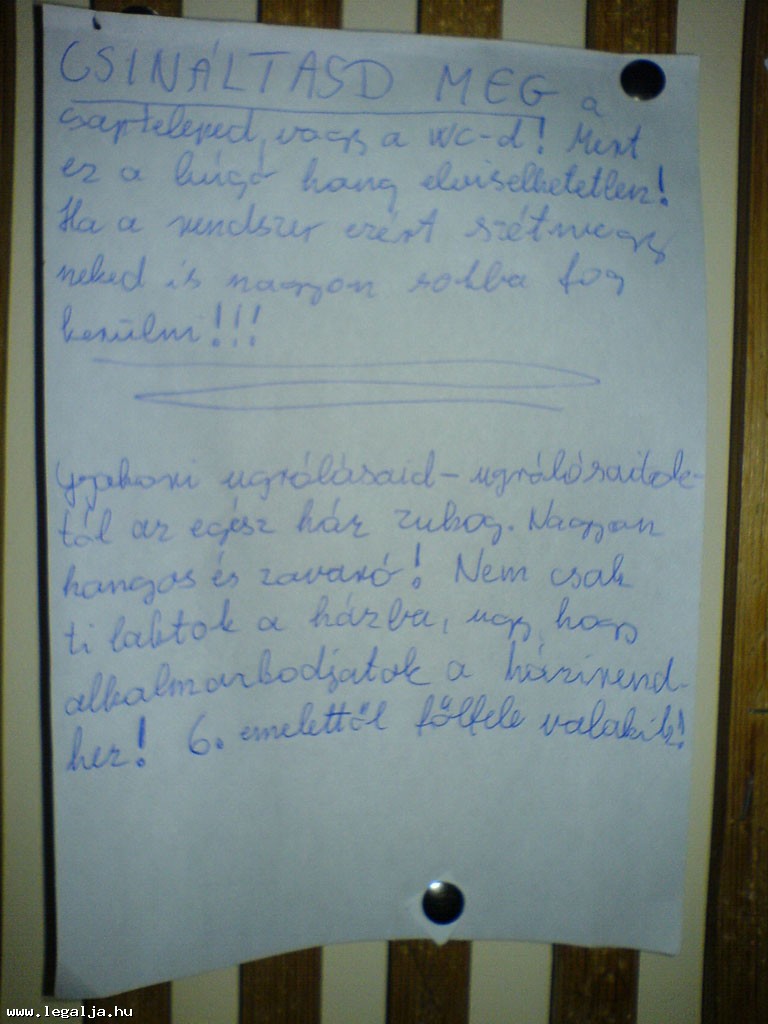 CSINÁLTASD MEG a
csapteleped, vagy a WC-d! Mert
ez a búgó hang elviselhetetlen!
Ha a rendszer ezért szétmegy
neked is nagyon sokba fog
kerülni!!!
Gyakori ugrálásaid-ugrálásaitok-
tól az egész ház zubog. Nagyon
hangos és zavaró! Nem csak
ti laktok a házba, úgy hogy
alkalmazkodjatok a házirend-
hez! 6. emelettől fölfele valakik!
www.legalja.hu